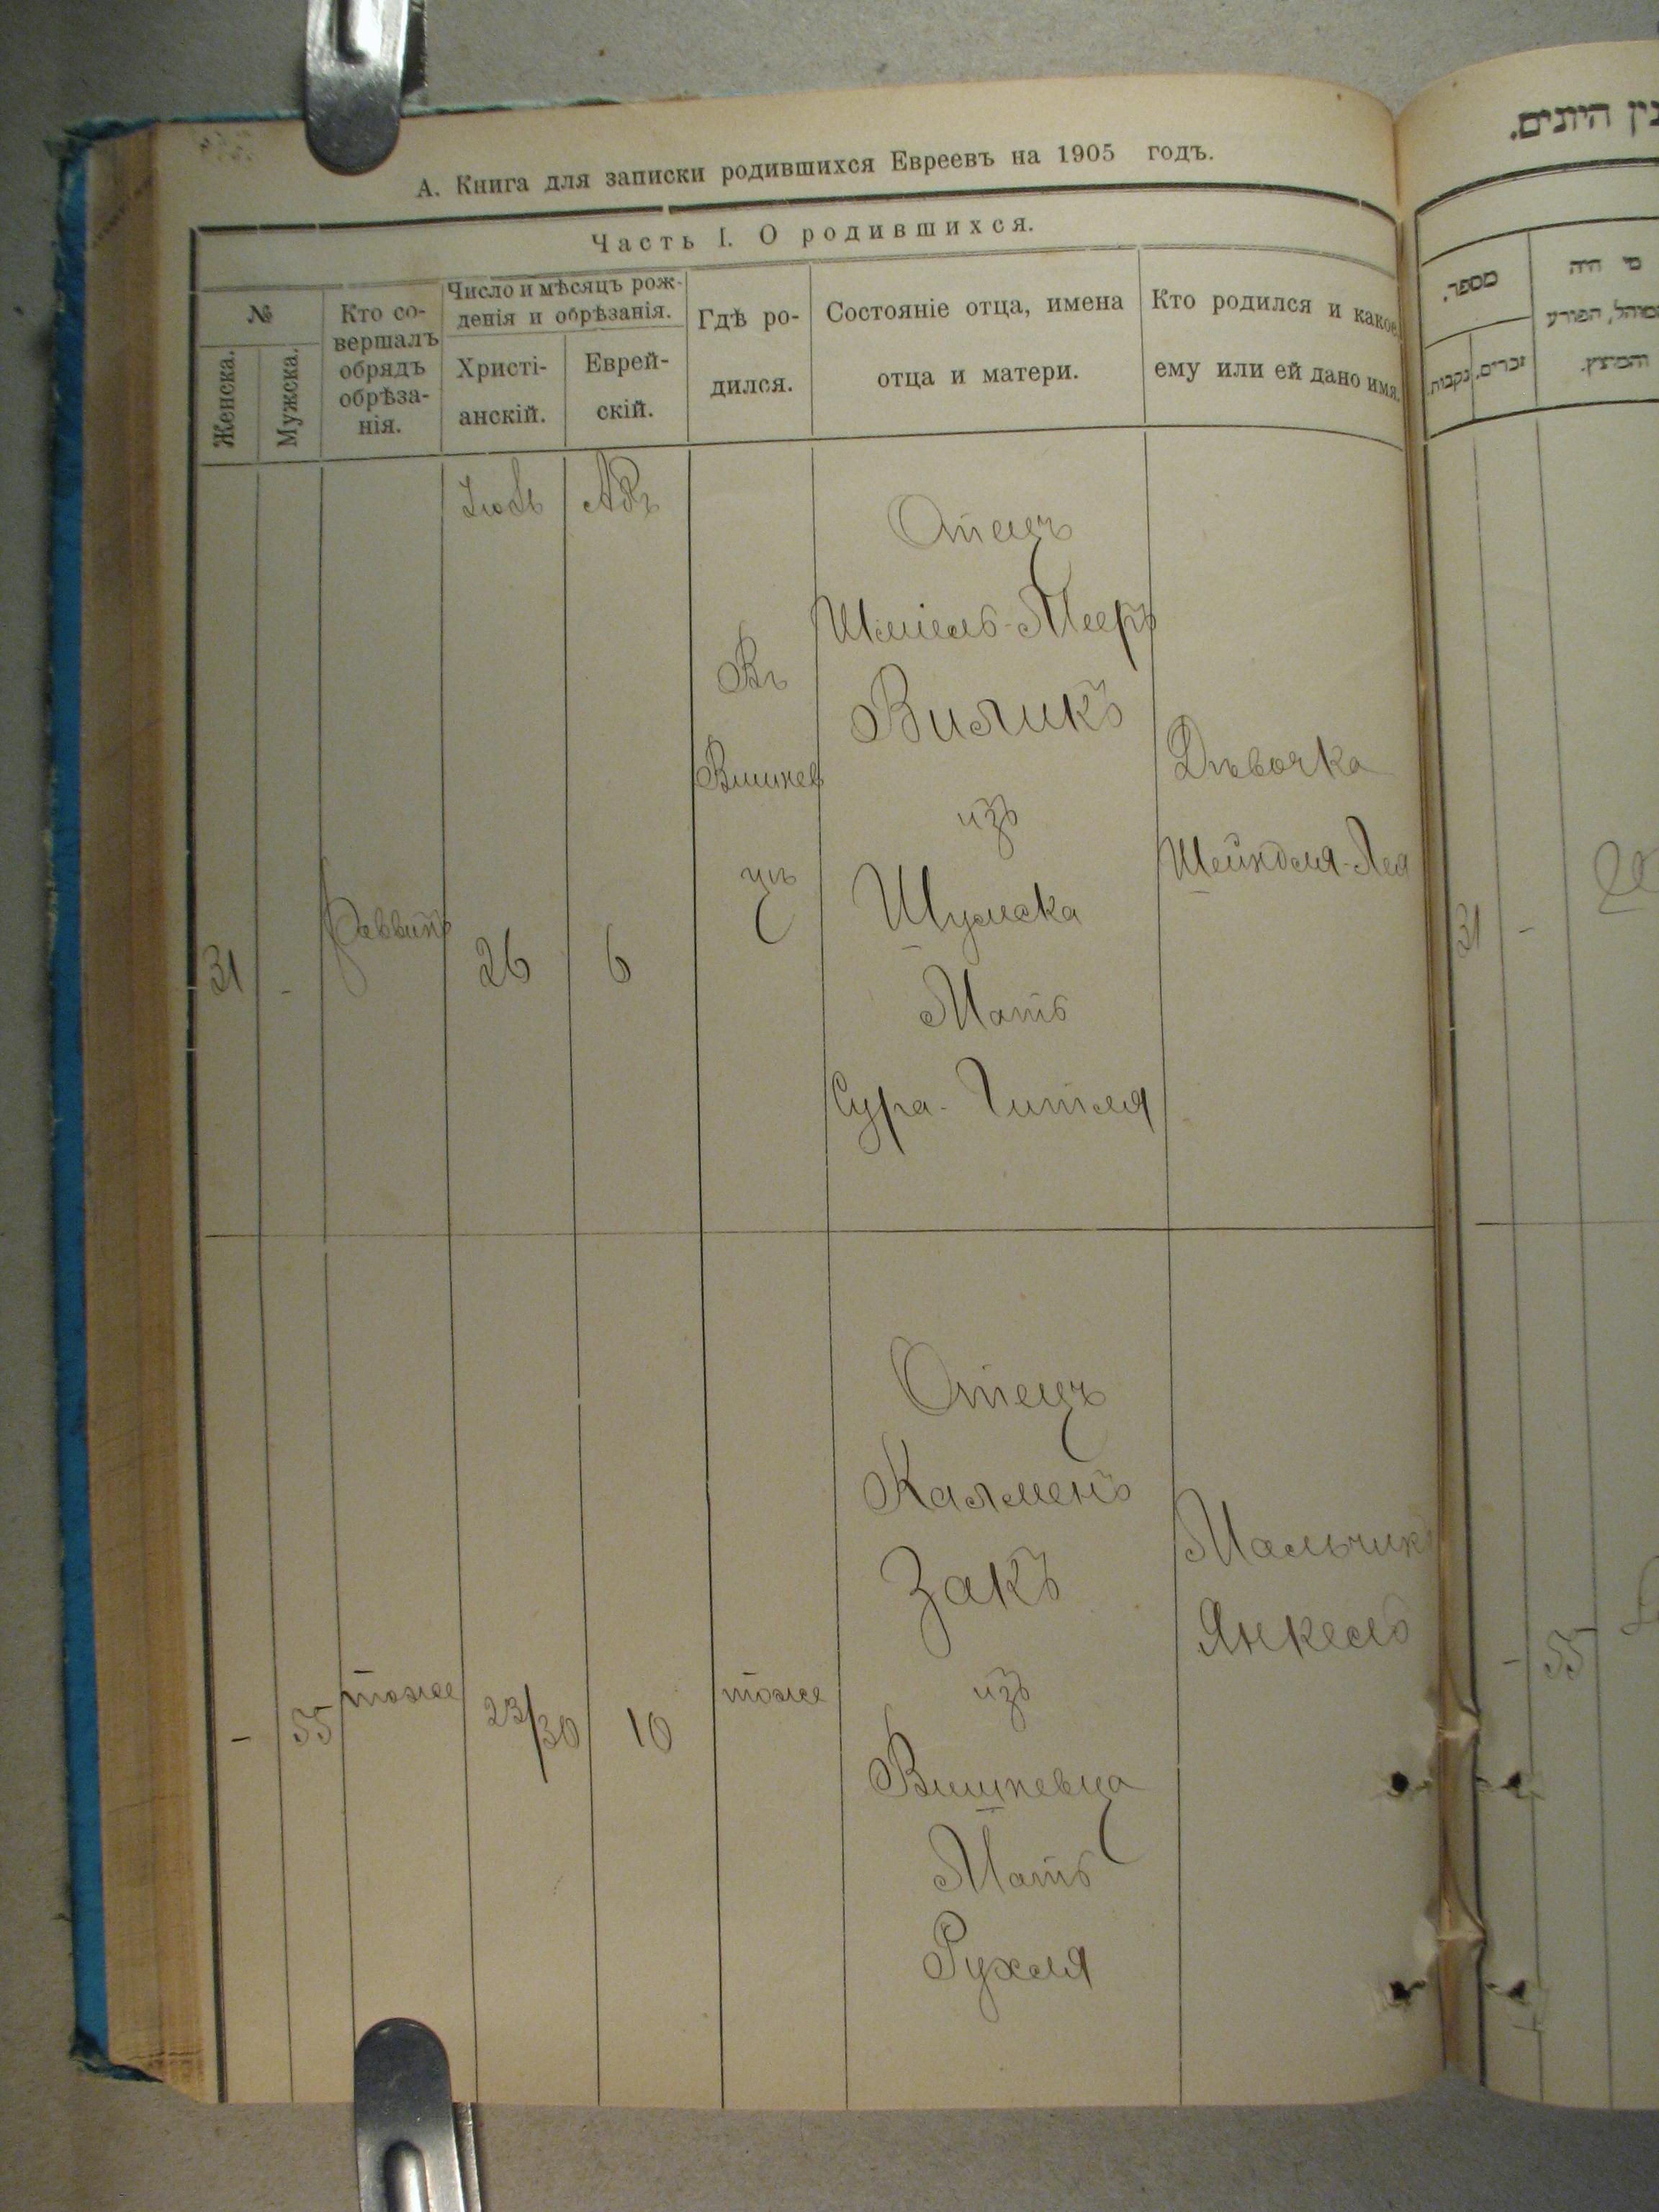 А. Книга для записки родившихся Евреевъ на 1905 годъ.
Часть I. О родившихся.
№
Женска.
Мужска.
Кто со-
вершалъ
обрядъ
обрѣза-
нія.
Число и мѣсяцъ рож-
денія и обрѣзанія.
Христі-
анскій.
Еврей-
скій.
Гдѣ ро-
дился.
Состояніе отца, имена
отца и матери.
Кто родился и какое
ему или ей дано имя.
Іюль
Абъ
31
-
Раввинъ
26
6
Въ
Вишнев
цѣ
Отецъ
Шмиель-Мееръ
Виликъ
изъ
Шумска
Мать
Сура-Гитля
Дѣвочка
Шейндля-Лея
-
55
тоже
23/30
10
тоже
Отецъ
Калменъ
Закъ
изъ
Вишневца
Мать
Рухля
Мальчикъ
Янкель
היתים.
מספר.
נקבות.
זכרים.
מי היה
המוהל, הפורע
והמוצץ.
31
-
-
55